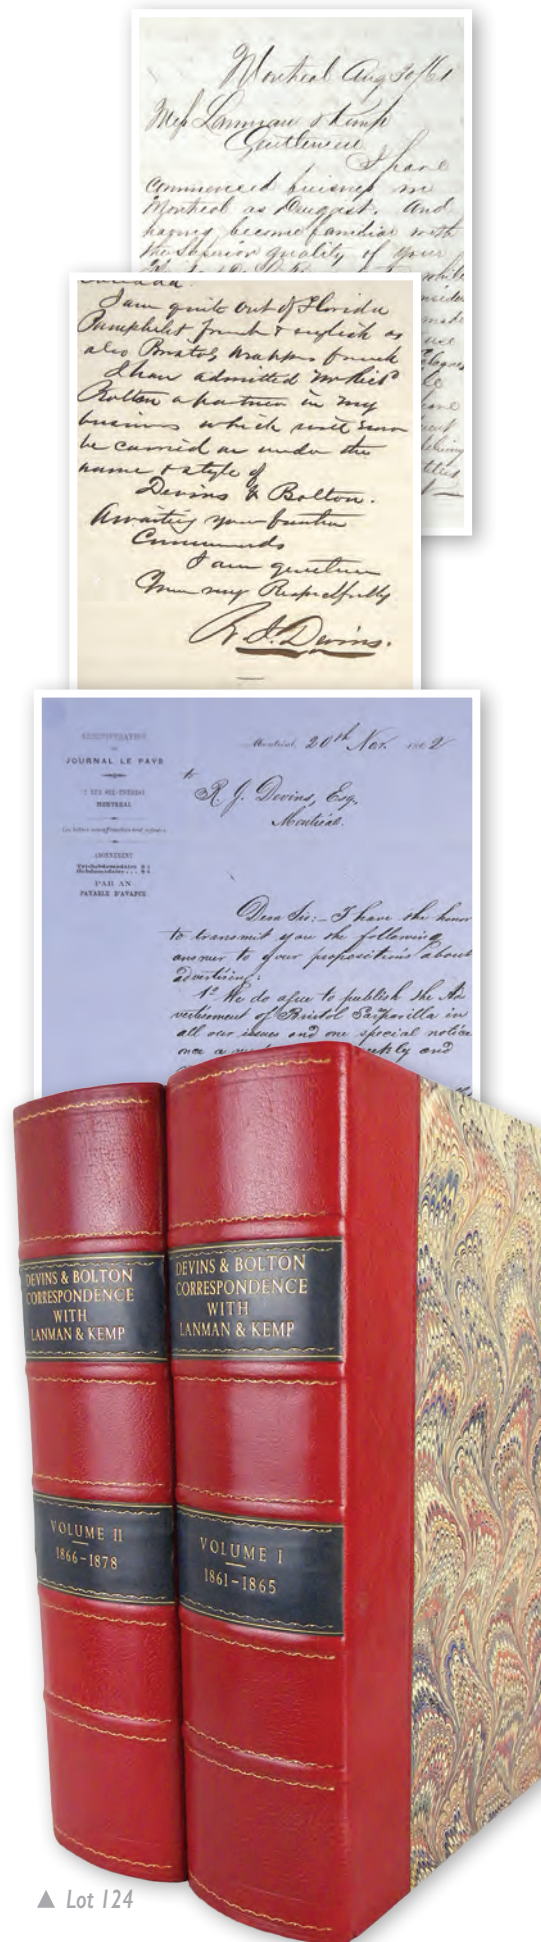 Montreal Aug 30/61
Mess Lanman & Kemp
Gentlemen
I have
commenced business in
Montreal as Druggist. And
having become familiar with
the Superior quality of your
while
made
use
Canada.
I am quite out of Florida
Pamphlet french & english as
also Bristol wrappers french
I have admitted Mr
Bolton a partner in my
business which will soon
be carried on under the
name & style of
Devins & Bolton.
Awaiting your further
Commands
I am gentlemen
Your very Respectfully
R. J. Devins.
ADMINISTRATION
JOURNAL LE PAYS
MONTREAL
ABONNEMENT
PAR AN
PAYABLE D'AVANCE
Montréal, 20th Nov. 1862
to
R. J. Devins, Esq.
Montréal.
Dear Sir:— I have the honor
to transmit you the following
answer to your propositions about
advertising:
1° We do agree to publish the Ad
vertisement of Bristol Sarparilla in
all our issues and one special notice
once a weekly and
DEVINS & BOLTON
CORRESPONDENCE
WITH
LANMAN & KEMP
VOLUME II
1866–1878
DEVINS & BOLTON
CORRESPONDENCE
WITH
LANMAN & KEMP
VOLUME I
1861–1865
▲ Lot 124